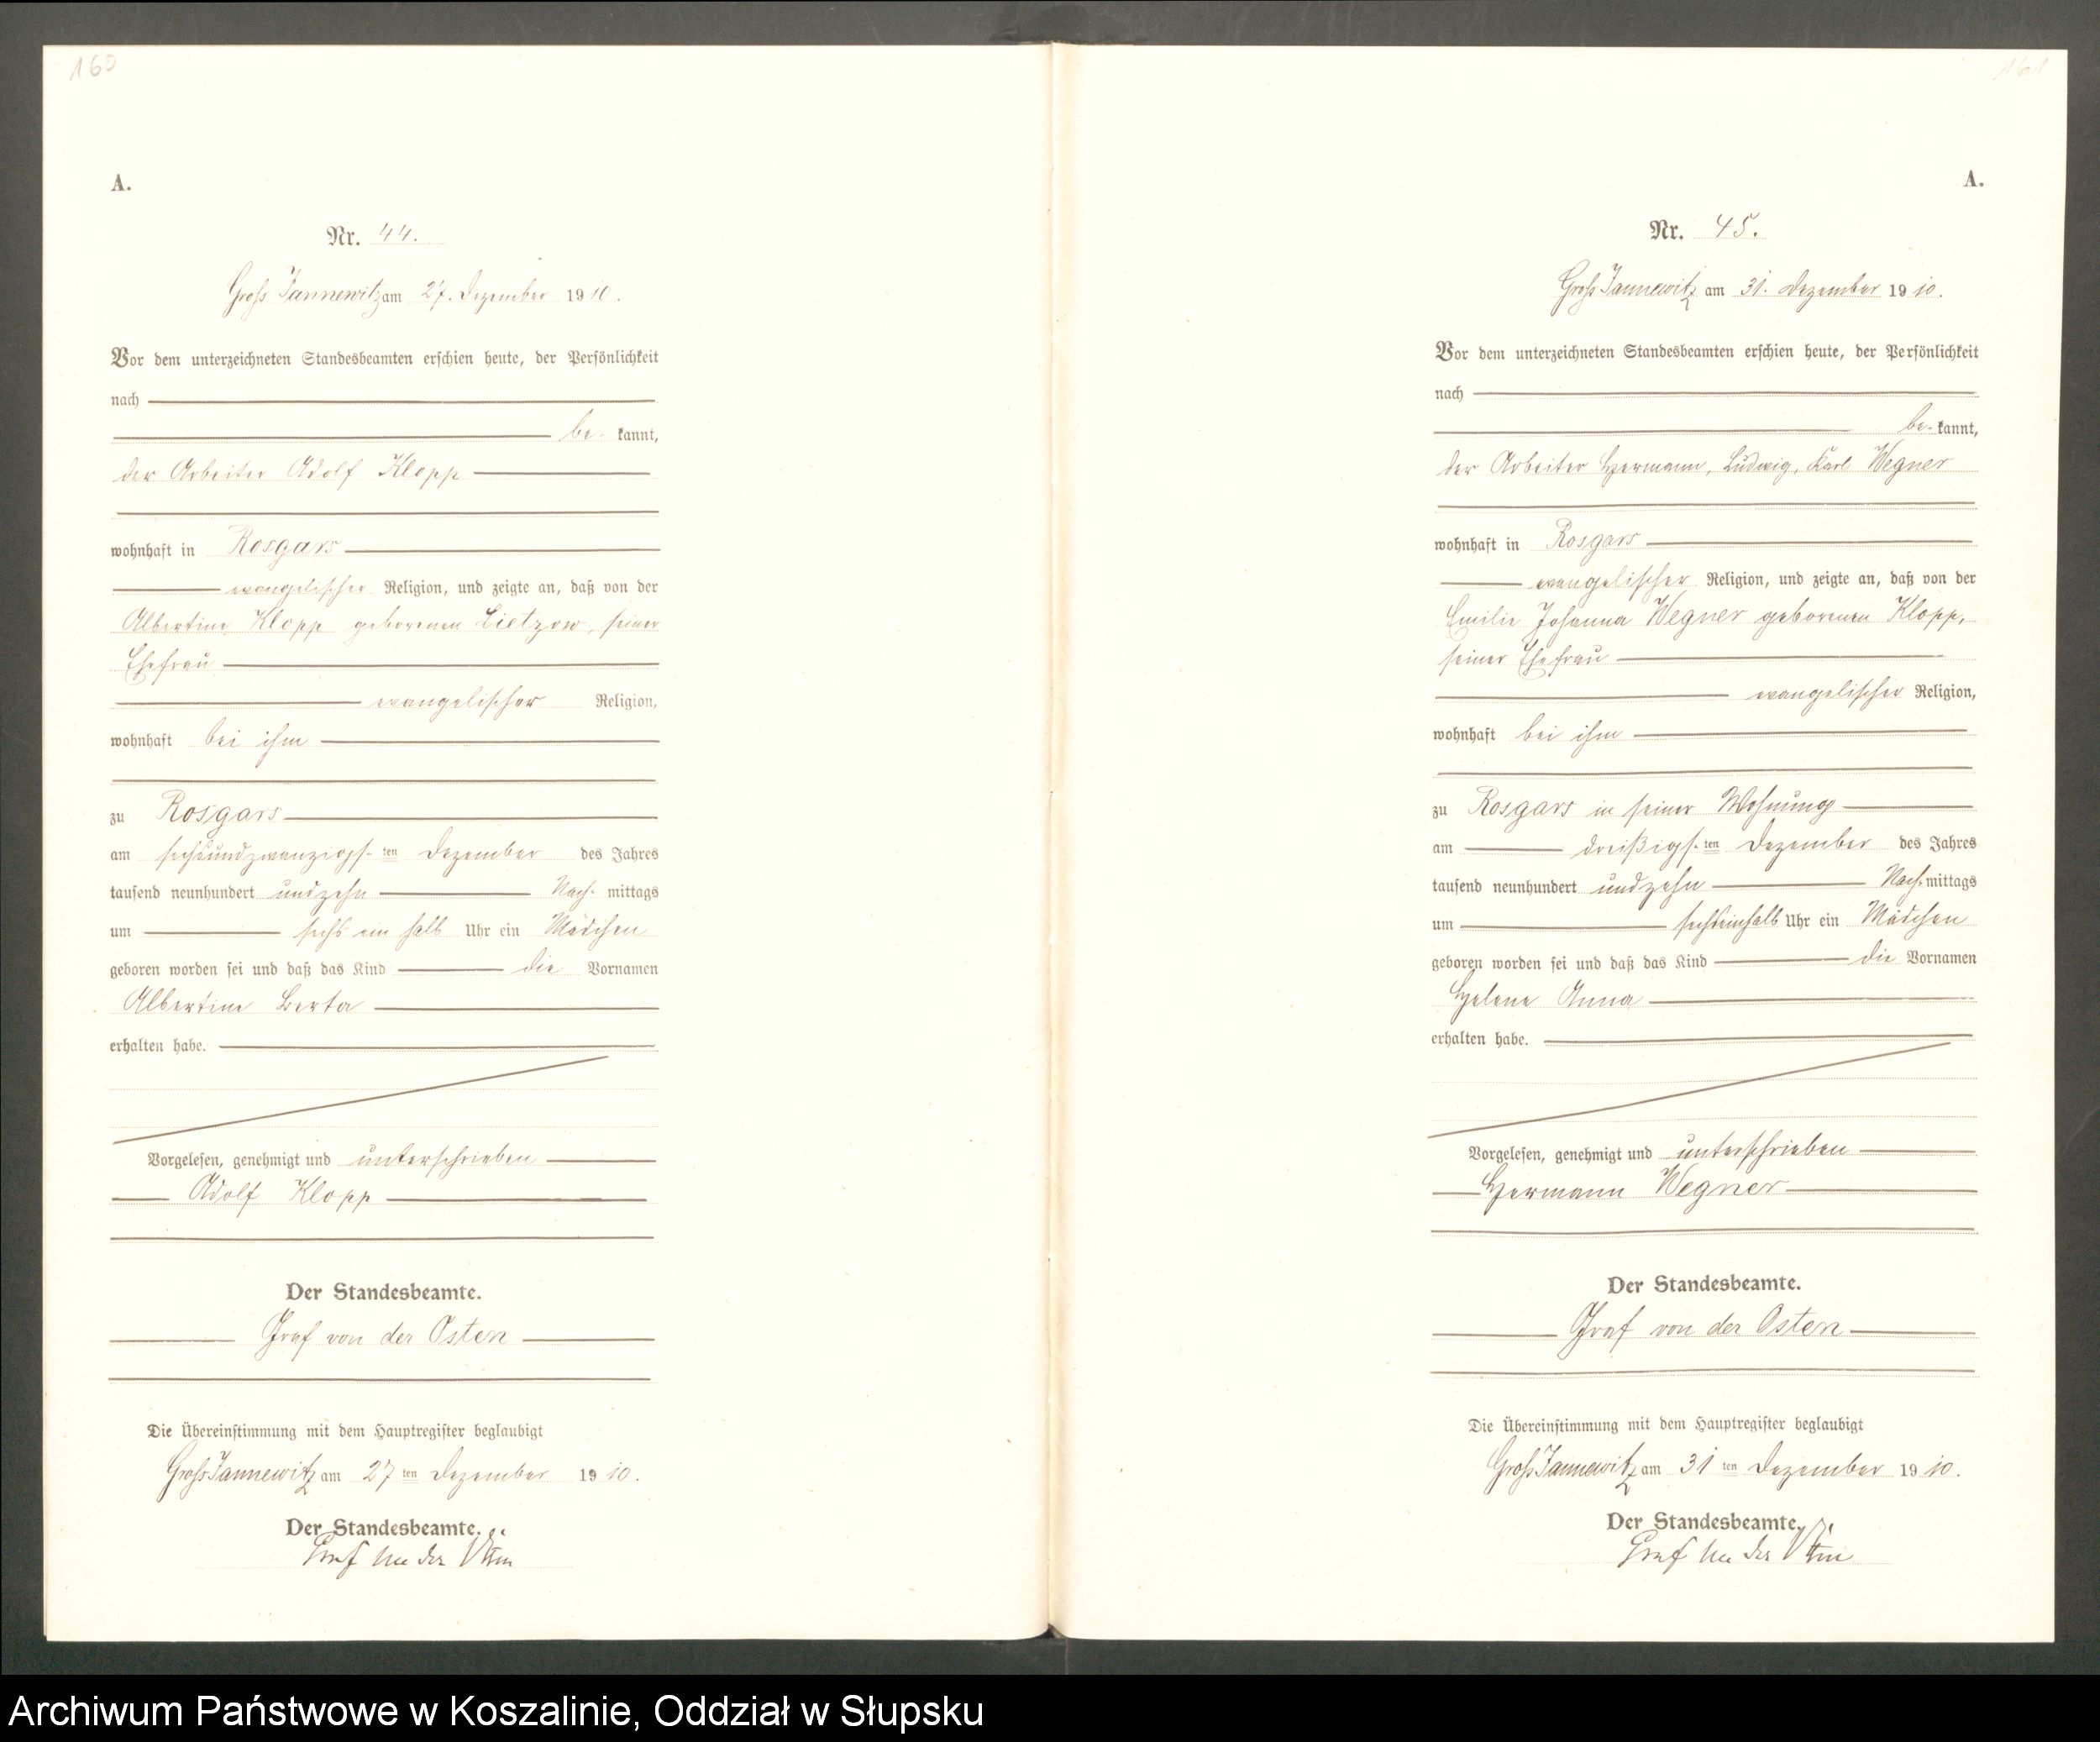 160
A.
Nr. 44.
Groß Jannewitz am 27. Dezember 1910.
Vor dem unterzeichneten Standesbeamten erschien heute, der Persönlichkeit
nach
be- kannt,
der Arbeiter Adolf Klopp
wohnhaft in Rosgars
evangelischer Religion, und zeigte an, daß von der
Albertine Klopp geborenen Lietzow, seiner
Ehefrau
evangelischer Religion,
wohnhaft bei ihm
zu Rosgars
am sechsundzwanzigs- ten Dezember des Jahres
tausend neunhundert undzehn Nach- mittags
um sechs ein halb Uhr ein Mädchen
geboren worden sei und daß das Kind die Vornamen
Albertine Berta
erhalten habe.
Vorgelesen, genehmigt und unterschrieben
Adolf Klopp
Der Standesbeamte.
Graf von der Osten
Die Übereinstimmung mit dem Hauptregister beglaubigt
Groß Jannewitz am 27 ten Dezember 1910.
Der Standesbeamte.
Graf von der Osten
161
A.
Nr. 45.
Groß Jannewitz am 31. Dezember 1910.
Vor dem unterzeichneten Standesbeamten erschien heute, der Persönlichkeit
nach
be- kannt,
der Arbeiter Hermann, Ludwig, Karl Wegner
wohnhaft in Rosgars
evangelischer Religion, und zeigte an, daß von der
Emilie Johanna Wegner geborenen Klopp,
seiner Ehefrau
evangelischer Religion,
wohnhaft bei ihm
zu Rosgars in seiner Wohnung
am dreißigs- ten Dezember des Jahres
tausend neunhundert undzehn Nach- mittags
um sechseinhalb Uhr ein Mädchen
geboren worden sei und daß das Kind die Vornamen
Helene Anna
erhalten habe.
Vorgelesen, genehmigt und unterschrieben
Hermann Wegner
Der Standesbeamte.
Graf von der Osten
Die Übereinstimmung mit dem Hauptregister beglaubigt
Groß Jannewitz am 31 ten Dezember 1910.
Der Standesbeamte.
Graf von der Osten
Archiwum Państwowe w Koszalinie, Oddział w Słupsku